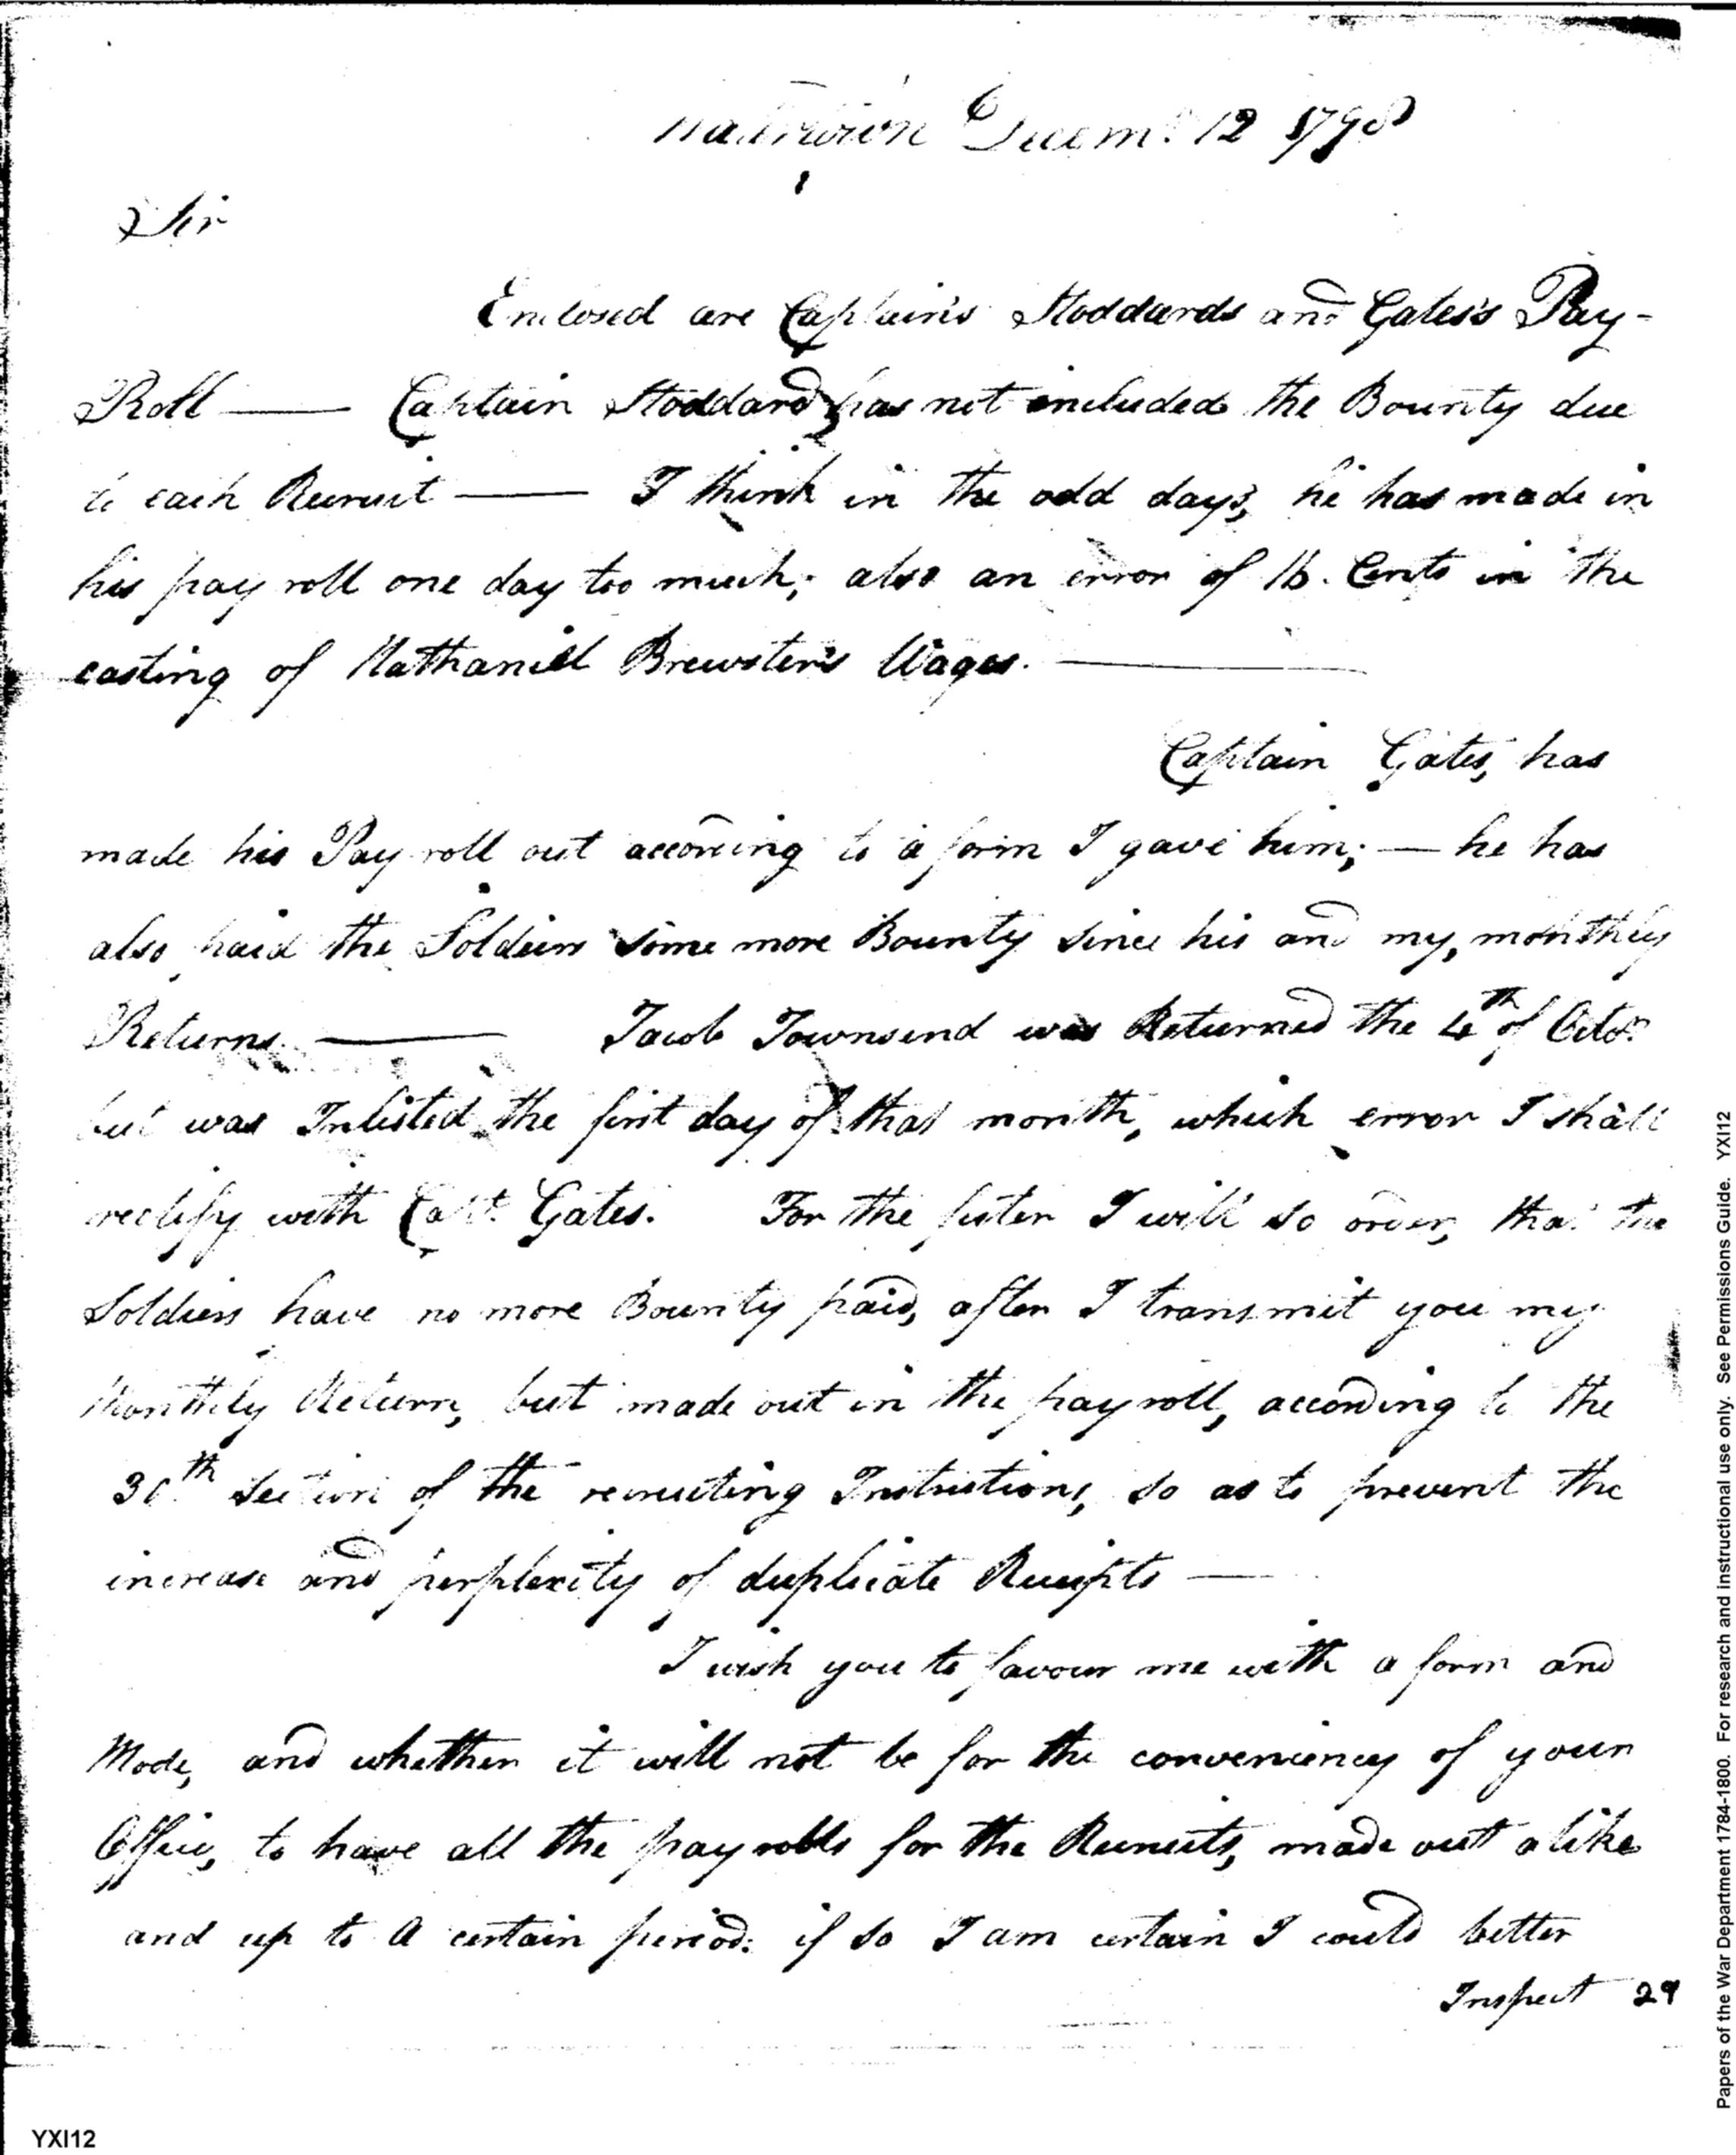 Watertown Decemr. 12 1798
Sir
Enclosed are Captain's Stoddards and Gates's Pay-
Roll — Captain Stoddard has not included the Bounty due
to each Recruit — I think in the odd days, he has made in
his pay roll one day too much; also an error of 16. Cents in the
casting of Nathaniel Brewster's Wages. —
Captain Gates, has
made his Pay roll out according to a form I gave him; — he has
also paid the Soldiers some more Bounty since his and my, monthly
Returns. — Jacob Townsend was Returned the 4th of Octor.
but was Inlisted the first day of that month, which error I shall
rectify with Capt. Gates. For the futer I will so order, that the
Soldiers have no more Bounty paid, after I transmit you my
Monthly Return, but made out in the pay roll, according to the
30th Section of the recruiting Instructions, so as to prevent the
increase and perplexity of duplicate Receipts —
I wish you to favour me with a form and
Mode, and whether it will not be for the conveniency of your
Office, to have all the pay rolls for the Recruits, made out alike
and up to a certain period: if so I am certain I could better
Inspect 29
YXI12
Papers of the War Department 1784-1800. For research and instructional use only. See Permissions Guide. YXI12